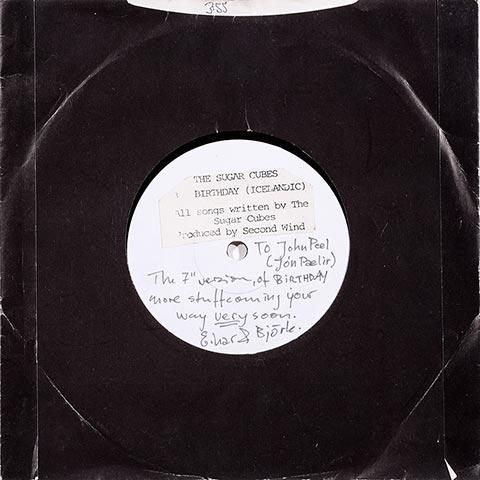 3:55
THE SUGAR CUBES
BIRTHDAY (ICELANDIC)
All songs written by The
Sugar Cubes
Produced by Second Wind
To John Peel
(Jón Pælir)
The 7" version, of BIRTHDAY
more stuff coming your
way very soon.
Einar & Björk.